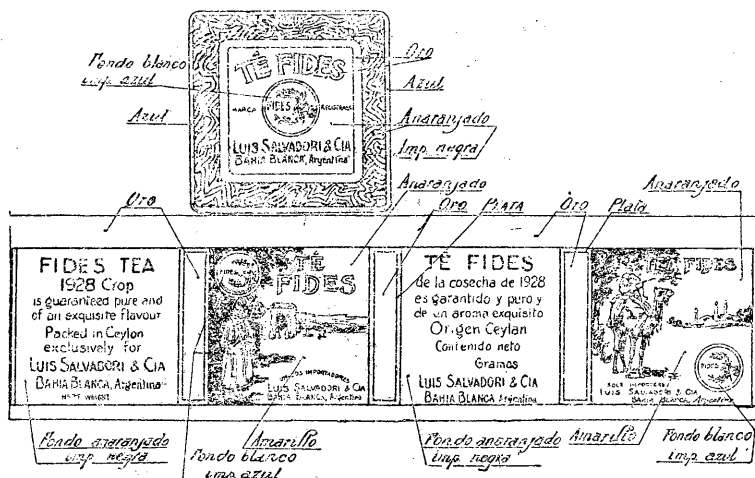 Fondo blanco
imp. azul
Azul
Oro
Azul
Anaranjado
Imp. negra
TÉ FIDES
MARCA FIDES REGISTRADA
LUIS SALVADORI & CIA
BAHIA BLANCA, Argentina
Oro
Anaranjado
Oro
PLATA
Oro
Plata
Anaranjado
FIDES TEA
1928 Crop
is guaranteed pure and
of an exquisite flavour
Packed in Ceylon
exclusively for
LUIS SALVADORI & CIA
BAHIA BLANCA, Argentina
NETT WEIGHT
TÉ
FIDES
UNICOS IMPORTADORES
LUIS SALVADORI & CIA
BAHIA BLANCA, Argentina
TÉ FIDES
de la cosecha de 1928
es garantido y puro y
de un aroma exquisito
Origen Ceylan
Contenido neto
Gramos
LUIS SALVADORI & CIA
BAHIA BLANCA Argentina
TÉ FIDES
FIDES
SOLE IMPORTERS
LUIS SALVADORI & CIA
BAHIA BLANCA, Argentina
Fondo anaranjado
imp. negra
Fondo blanco
imp. azul
Amarillo
Fondo anaranjado
imp. negra
Amarillo
Fondo blanco
imp. azul